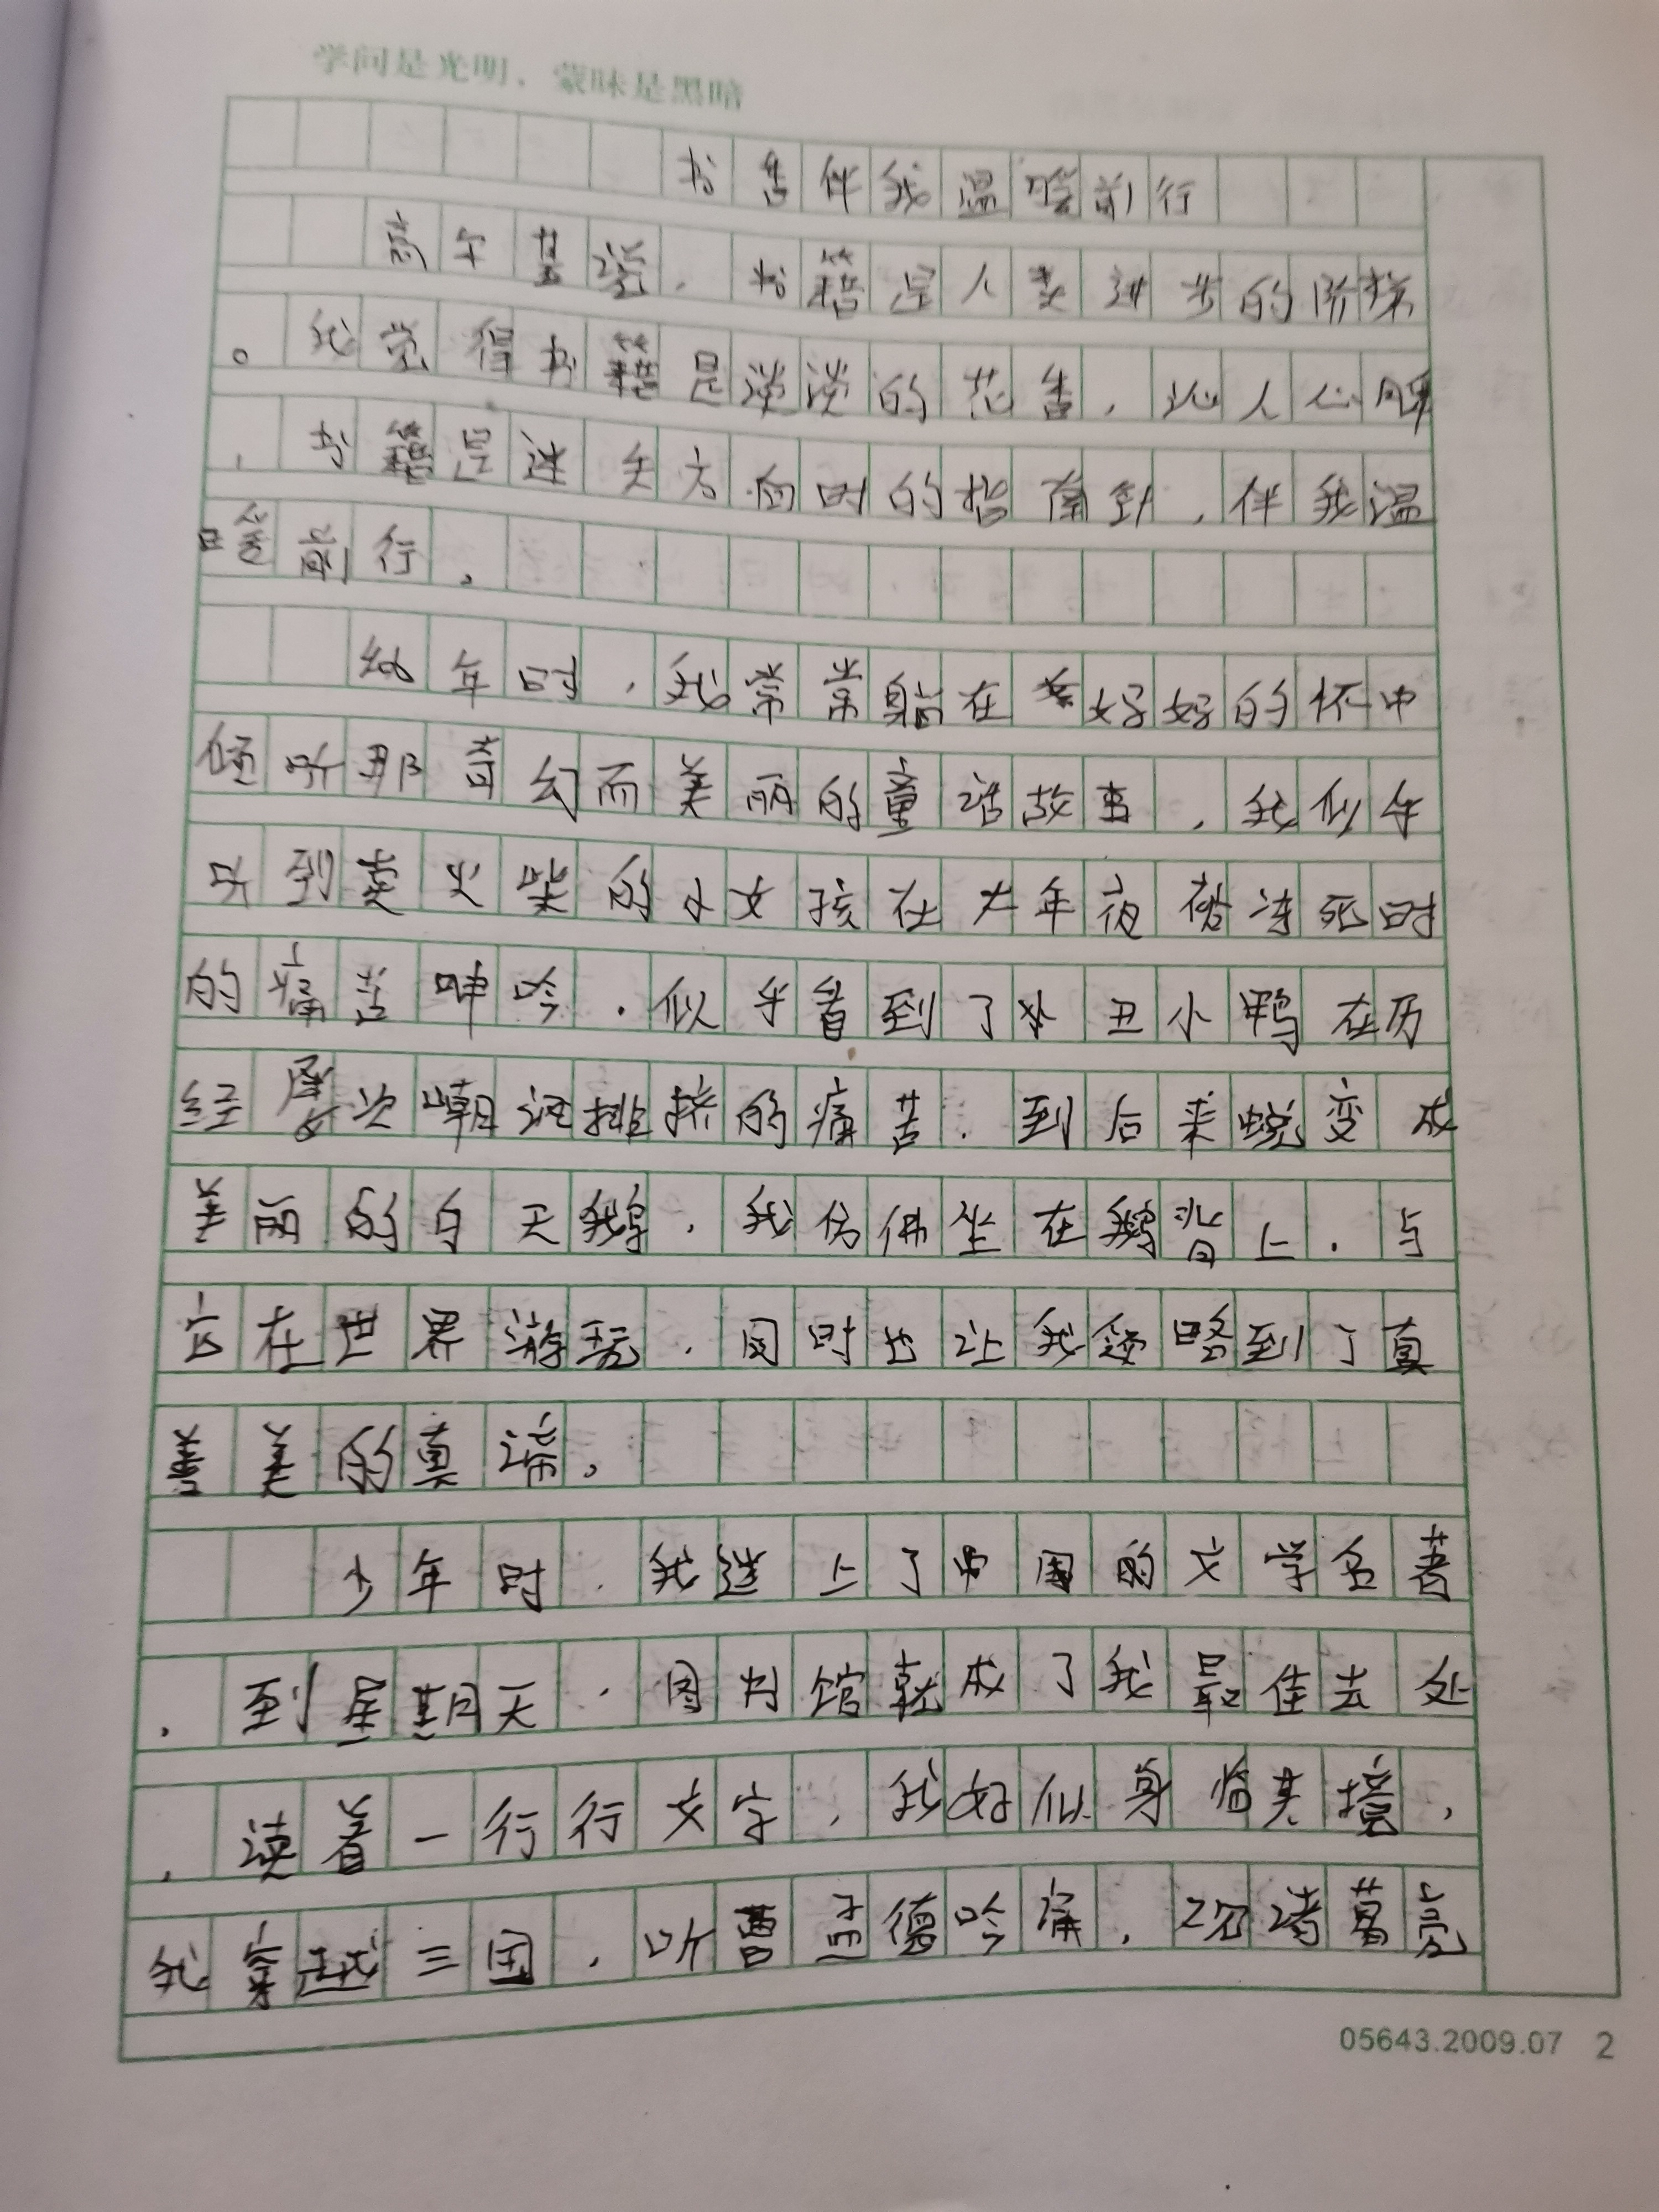 学问是光明，蒙昧是黑暗
书香伴我温暖前行
高尔基说，书籍是人类进步的阶梯
。我觉得书籍是淡淡的花香，沁人心脾
，书籍是迷失方向时的指南针，伴我温
暖前行。
幼年时，我常常躺在妈妈的怀中
倾听那奇幻而美丽的童话故事，我似乎
听到卖火柴的小女孩在大年夜被冻死时
的痛苦呻吟，似乎看到了丑小鸭在历
经屡次嘲讽排挤的痛苦，到后来蜕变成
美丽的白天鹅，我仿佛坐在鹅背上，与
它在世界游玩，同时也让我领略到了真
善美的真谛。
少年时，我迷上了中国的文学名著
，到星期天，图书馆就成了我最佳去处
，读着一行行文字，我好似身临其境，
我穿越三国，听曹孟德吟诵，观诸葛亮
05643.2009.07 2